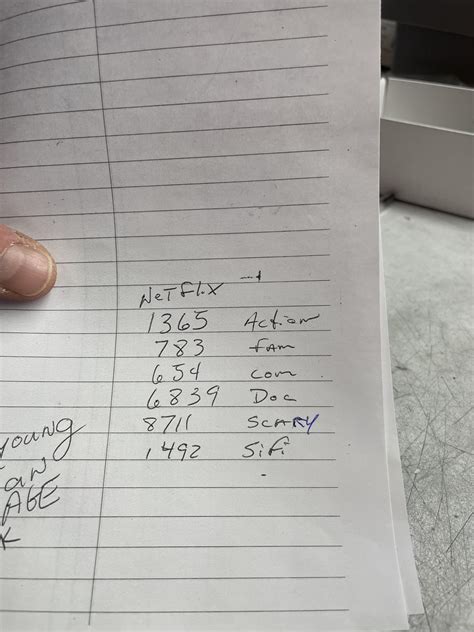 NeTflix
1365 Action
783 fam
654 com
6839 Doc
8711 SCARY
1492 Sifi
young
an
AGE
K